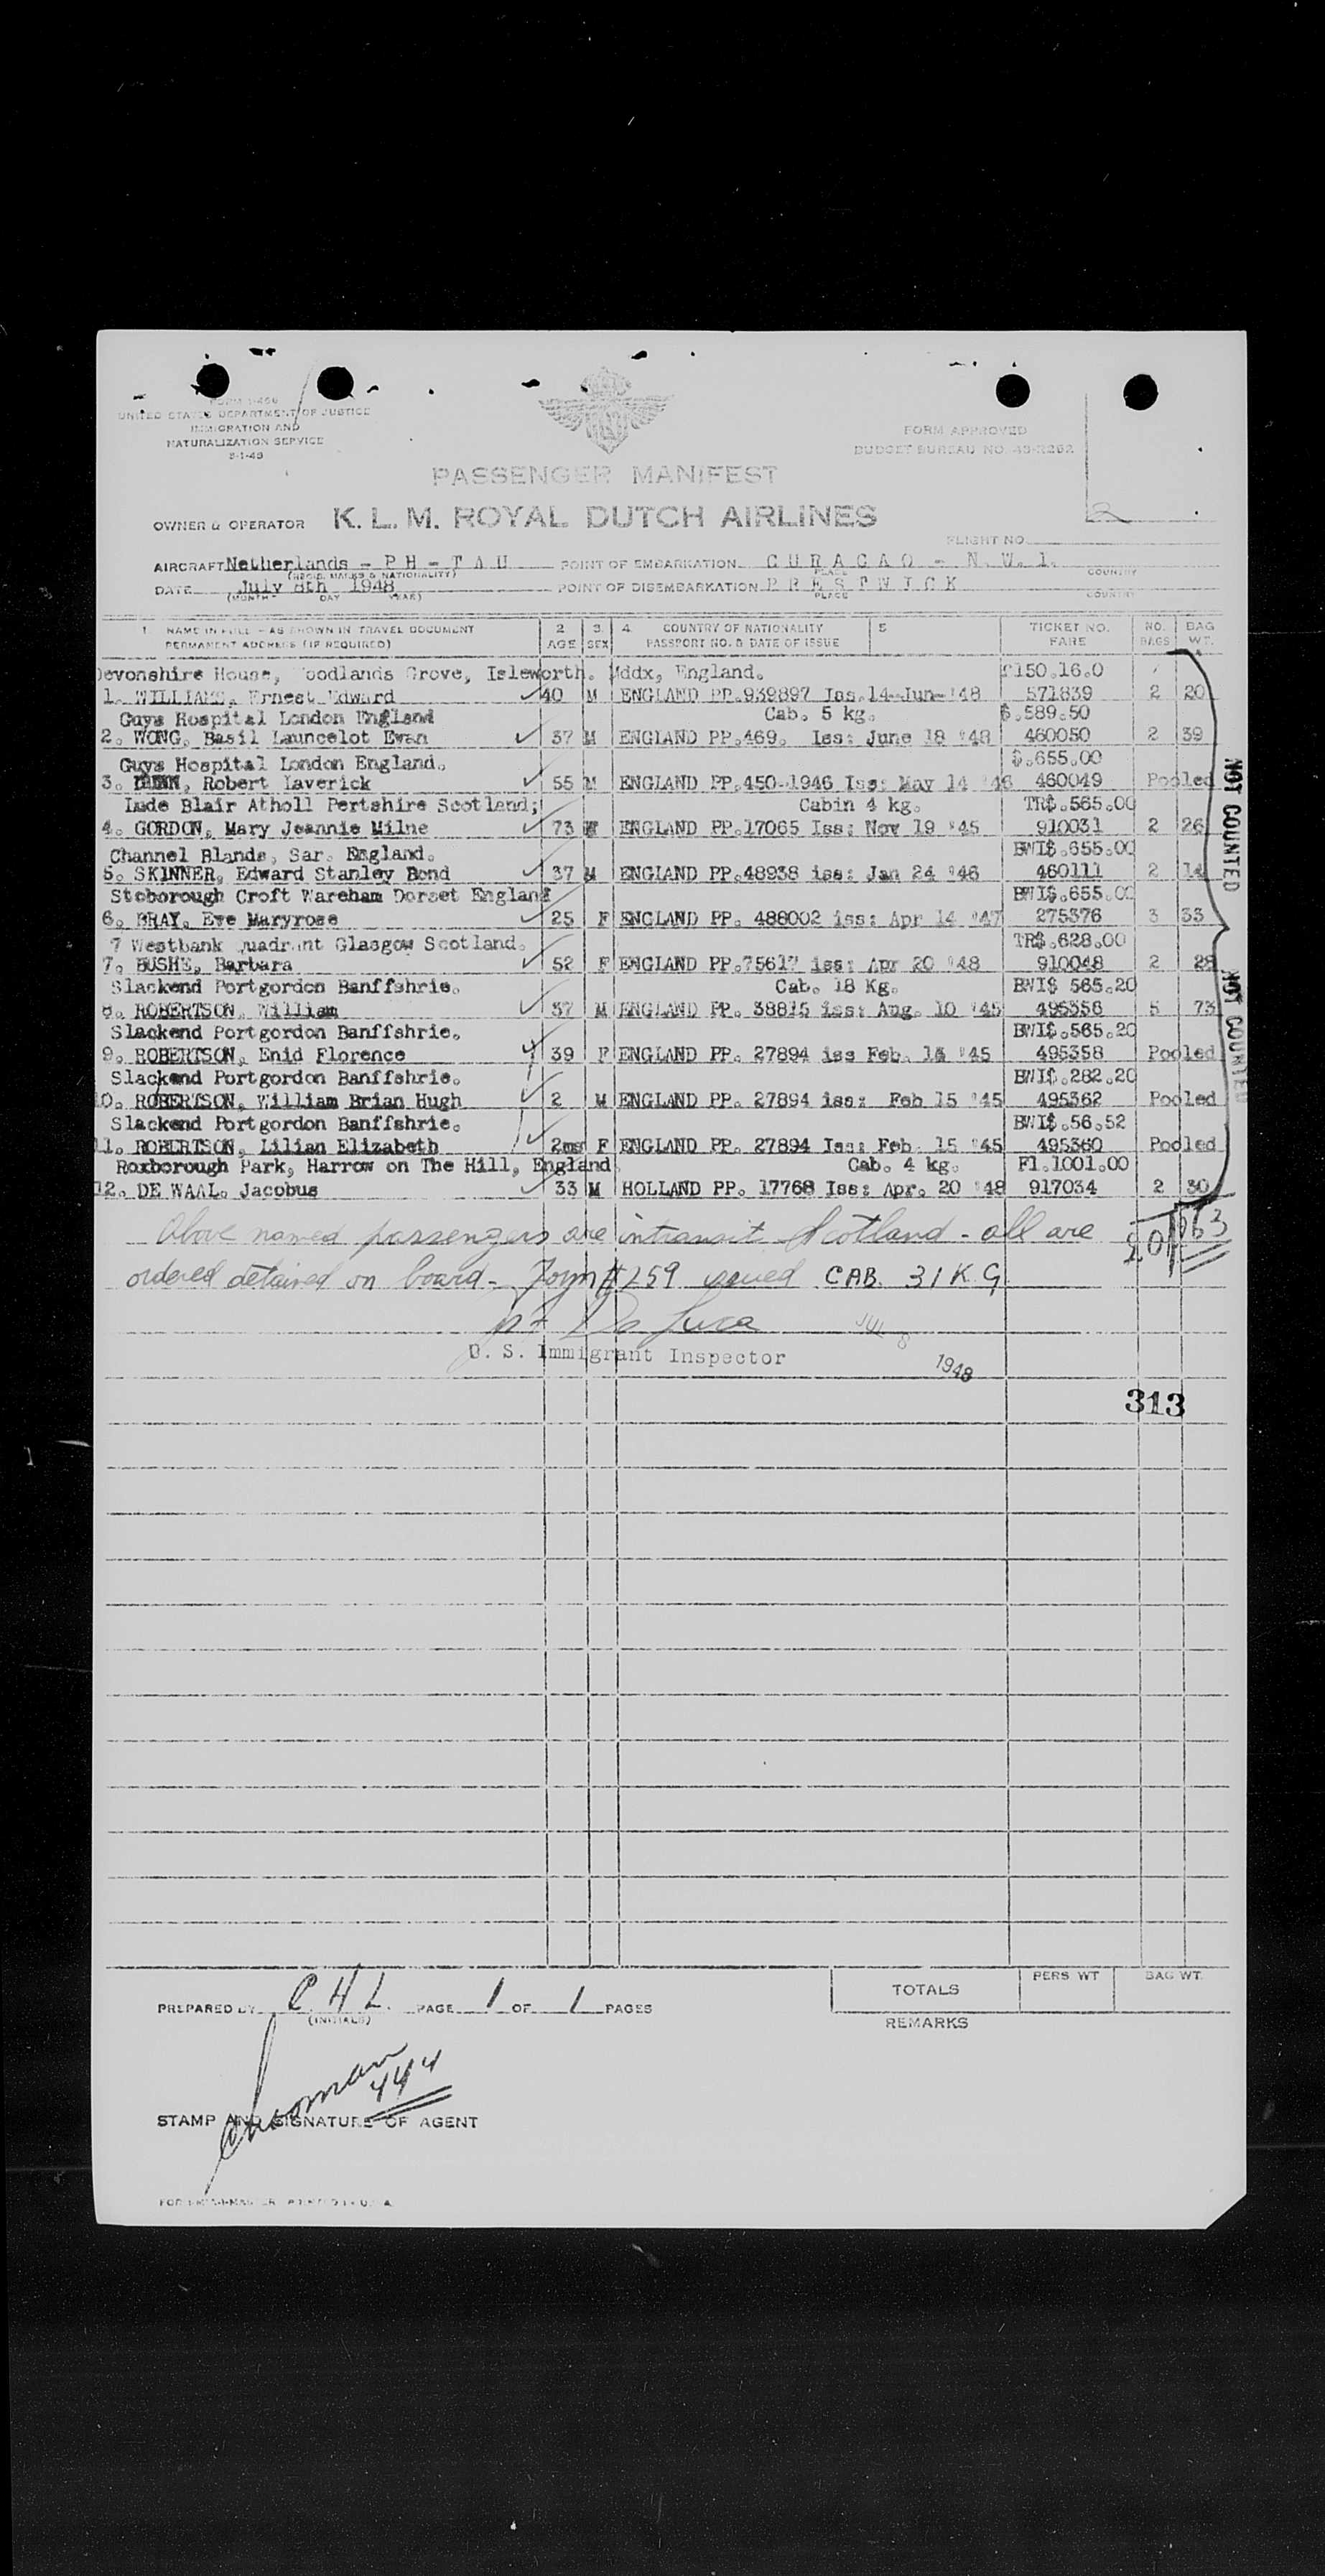 FORM I-466
UNITED STATES DEPARTMENT OF JUSTICE
IMMIGRATION AND
NATURALIZATION SERVICE
FORM APPROVED
BUDGET BUREAU NO. 43-R262
PASSENGER MANIFEST
2
OWNER & OPERATOR K. L. M. ROYAL DUTCH AIRLINES
FLIGHT NO.
AIRCRAFT Netherlands - P H - T A U POINT OF EMBARKATION C U R A C A O - N. W. I.
(REGIS. MARKS & NATIONALITY) PLACE COUNTRY
DATE July 8th 1948 POINT OF DISEMBARKATION P R E S T W I C K
(MONTH DAY YEAR) PLACE COUNTRY
1 NAME IN FULL - AS SHOWN IN TRAVEL DOCUMENT 2 3 4 COUNTRY OF NATIONALITY 5 TICKET NO. NO. BAG
PERMANENT ADDRESS (IF REQUIRED) AGE SEX PASSPORT NO. & DATE OF ISSUE FARE BAGS WT.
Devonshire House, Woodlands Grove, Isleworth. Mddx, England. £150.16.0
1. WILLIAMS, Ernest Edward 40 M ENGLAND PP.939897 Iss.14-Jun-'48 571839 2 20
Guys Hospital London England Cab. 5 kg. $.589.50
2. WONG, Basil Launcelot Ewan 37 M ENGLAND PP.469. Iss: June 18 '48 460050 2 39
Guys Hospital London England. $.655.00
3. Robert Laverick 55 M ENGLAND PP.450-1946 Iss: May 14 '46 460049 Pooled
Lude Blair Atholl Pertshire Scotland; Cabin 4 kg. TR$.565.00
4. GORDON, Mary Jeannie Milne 73 ENGLAND PP.17065 Iss: Nov 19 '45 910031 2 26
Channel Blands, Sar. England. BWI$.655.00
5. SKINNER, Edward Stanley Bond 37 M ENGLAND PP.48938 iss: Jan 24 '46 460111 2 14
Stoborough Croft Wareham Dorset England BWI$.655.00
6. BRAY, Eve Maryrose 25 F ENGLAND PP. 488002 iss: Apr 14 '47 275376 3 33
7 Westbank Quadrant Glasgow Scotland. TR$.628.00
7. BUSHE, Barbara 52 F ENGLAND PP.75617 iss: Apr 20 '48 910048 2 28
Slackend Portgordon Banffshrie. Cab. 18 Kg. BWI$ 565.20
8. ROBERTSON, William 37 M ENGLAND PP. 38815 iss: Aug. 10 '45 495356 5 73
Slackend Portgordon Banffshrie. BWI$.565.20
9. ROBERTSON, Enid Florence 39 F ENGLAND PP. 27894 iss Feb. 15 '45 495358 Pooled
Slackend Portgordon Banffshrie. BWI$.282.20
10. ROBERTSON, William Brian Hugh 2 M ENGLAND PP. 27894 iss: Feb 15 '45 495362 Pooled
Slackend Portgordon Banffshrie. BWI$.56.52
11. ROBERTSON, Lilian Elizabeth 2ms F ENGLAND PP. 27894 Iss: Feb. 15 '45 495360 Pooled
Roxborough Park, Harrow on The Hill, England Cab. 4 kg. Fl.1001.00
12. DE WAAL. Jacobus 33 M HOLLAND PP. 17768 Iss: Apr. 20 '48 917034 2 30
NOT COUNTED
NOT COUNTED
Above named passengers are intransit Scotland - all are 20/263
ordered detained on board - Form #259 issued CAB. 31 K G.
JUL 8 1948
U. S. Immigrant Inspector
313
PREPARED BY C. H. L. PAGE 1 OF 1 PAGES
(INITIALS)
TOTALS PERS WT BAG WT.
REMARKS
444
STAMP AND SIGNATURE OF AGENT